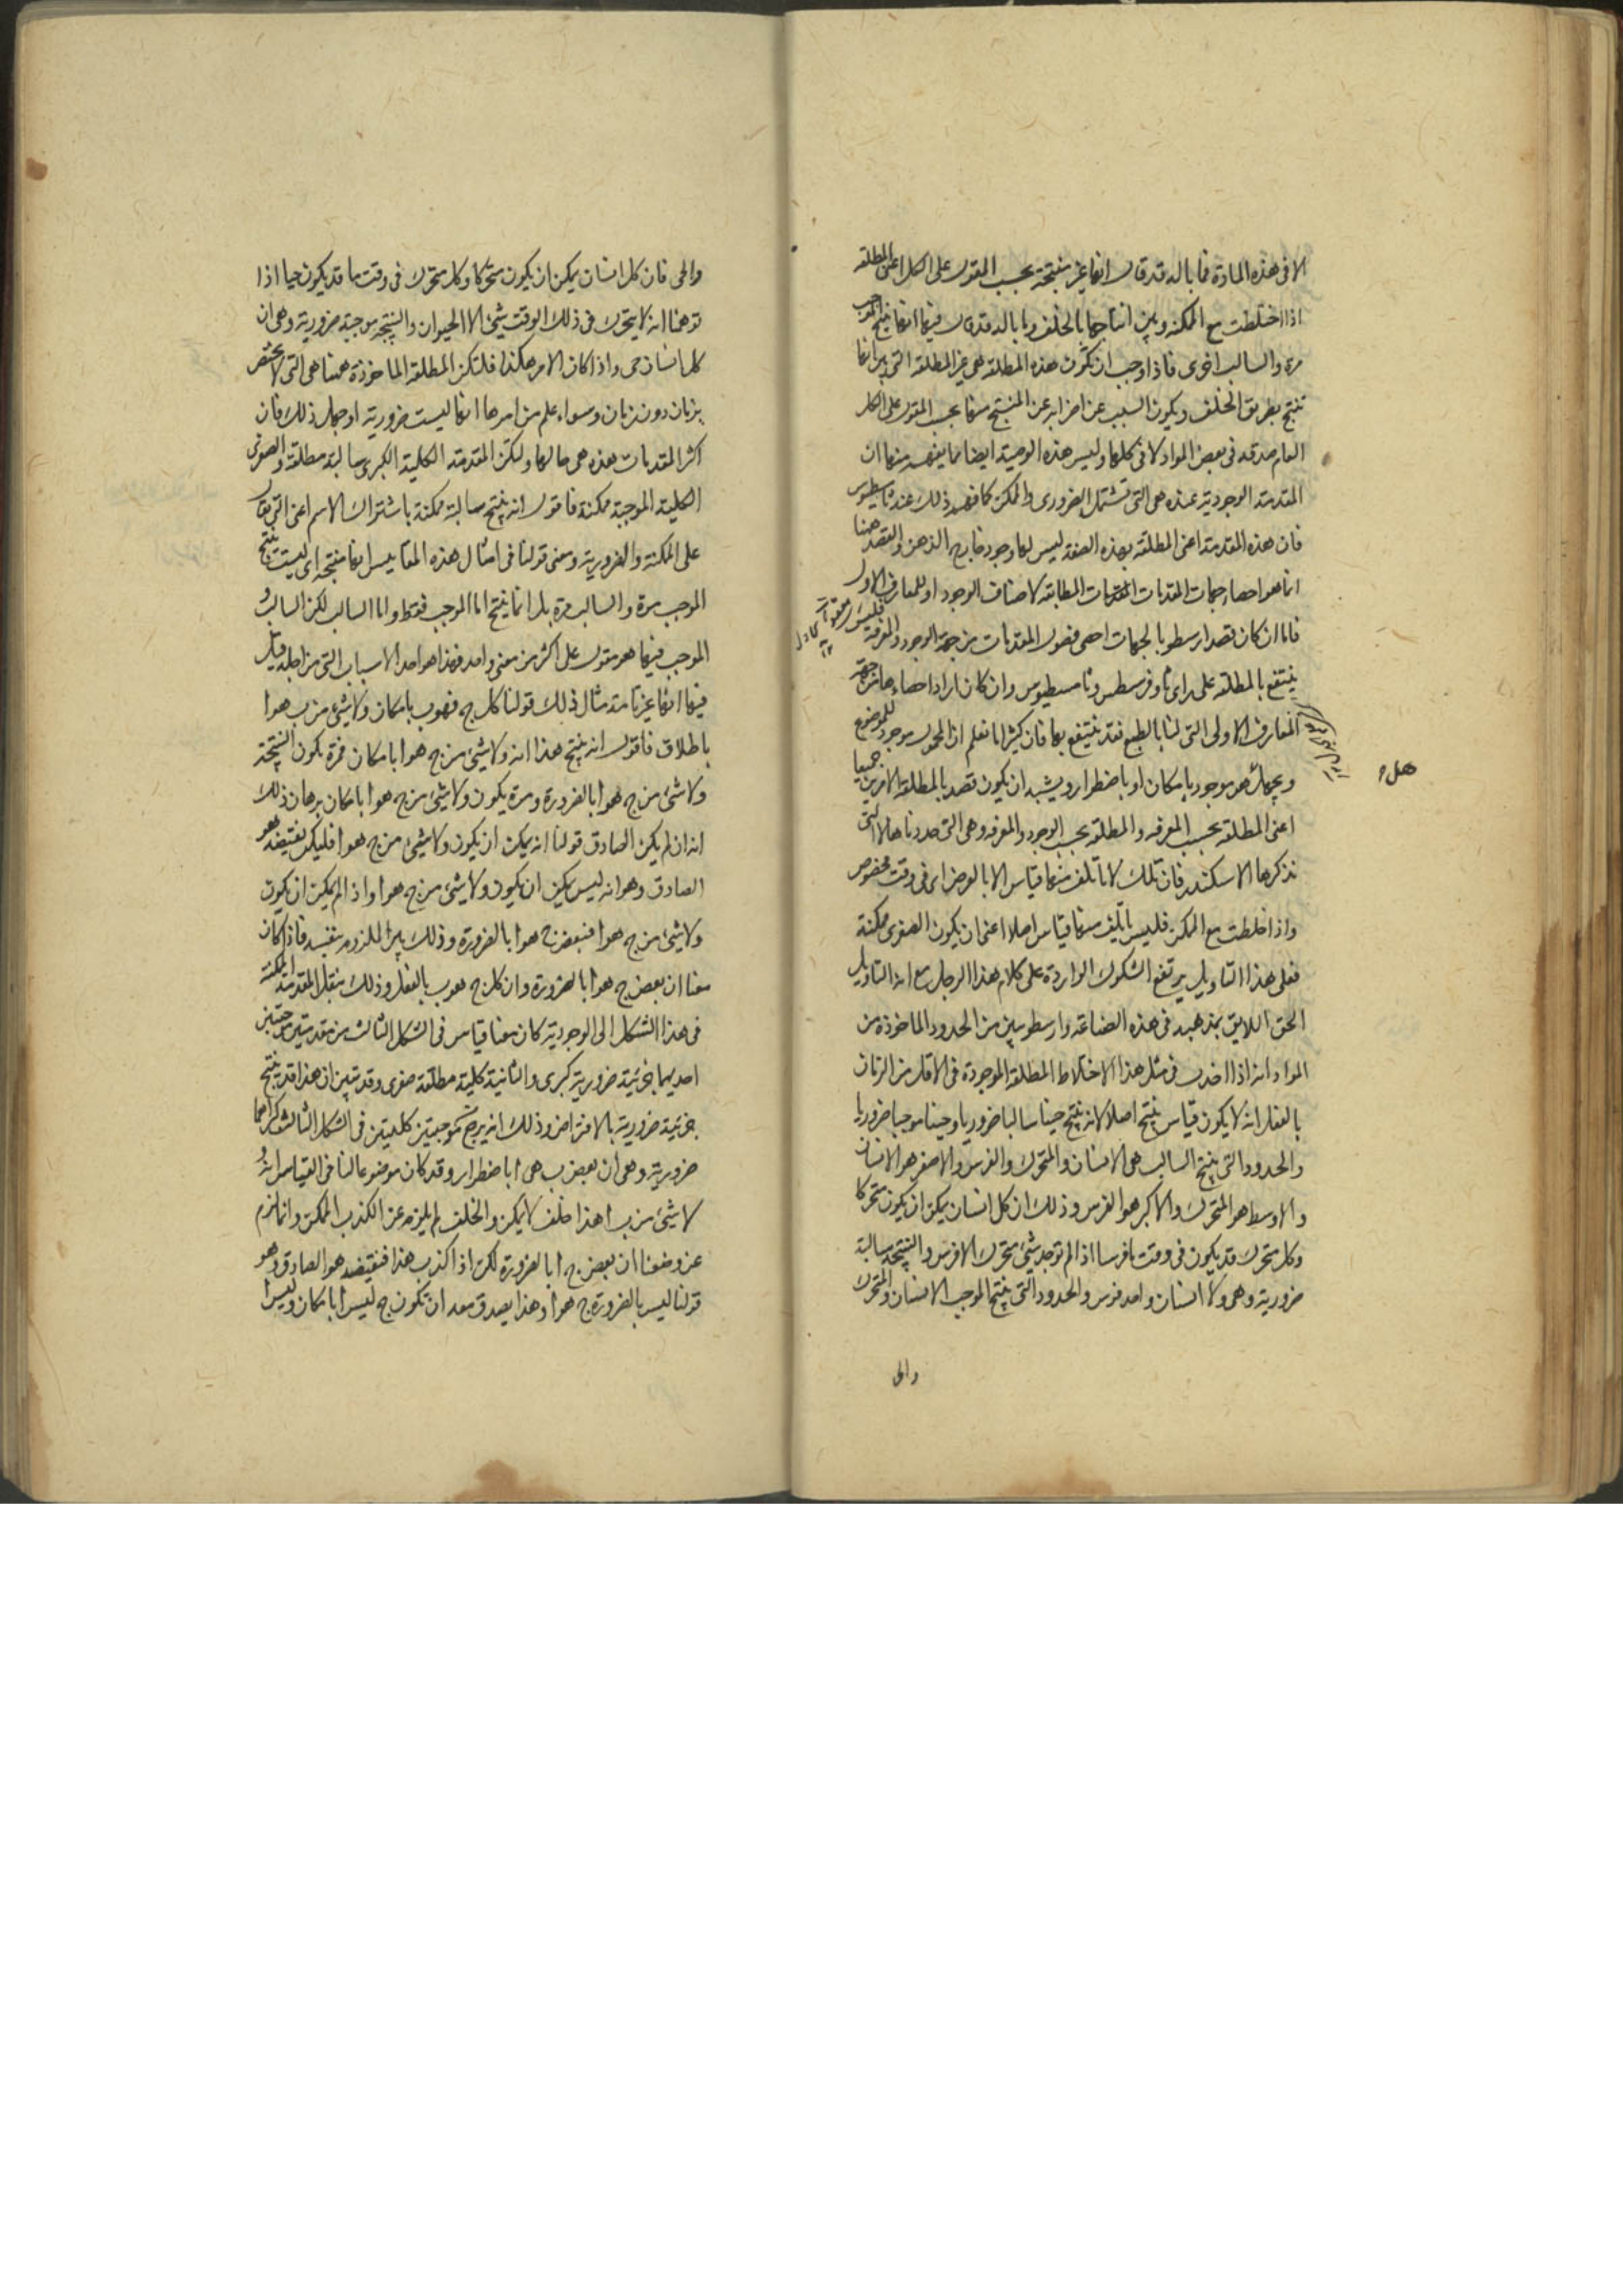 الا فى هذه المادة فما باله قد قال انها غير منتجة بحسب المقول على الكل اعنى المطلقه
اذا اختلطت مع الممكنه وبين انتاجها بالخلف وما باله قد قال فيها انها تنتج الموجب
مرة والسالب اخرى فاذا وجب ان تكون هذه المطلقه هى غير المطلقه التى يرى انها
تنتج بطريق الخلف ويكون السبب عن اضرابه عن المنتج منها بحسب المقول على الكل
العام صدقه فى بعض المواد لا فى كلها وليس هذه الوصية ايضا مما يفهم منها ان
المقدمة الوجودية عنده هى التى تشتمل الضرورى والممكن كما فهم ذلك عنه ثامسطيوس
فان هذه المقدمة اعنى المطلقه بهذه الصفة ليس لها وجود خارج الذهن والقصد ههنا
انما هو احصاء جهات المقدمات المطابقه لاصناف الوجود او للمعارف الاول
فاما ان كان قصد ارسطو بالجهات احصى فصول المقدمات من جهة الوجود والمعرفة فليس
ينتفع بالمطلقه على راى ثاوفرسطس وثامسطيوس وان كان اراد احصاءها من جهة
المعارف الاولى التى لنا بالطبع فقد ينتفع بها فان كثيرا ما نعلم ان المحمول موجود للموضوع
ونجهل هل هو موجود بامكان او باضطرار ويشبه ان يكون قصد بالمطلقة الامرين جميعا
اعنى المطلقه بحسب المعرفه والمطلقه بحسب الوجود والمعرفه وهى التى حددناها لا التى
نذكرها الاسكندر فان تلك لا تاتلف منها قياس الا بالعرض اى فى وقت مخصوص
واذا خلطت مع الممكن فليس ياتلف منها قياس اصلا اعنى ان يكون الصغرى ممكنة
فعلى هذا التاويل يرتفع الشكوك الواردة على كلام هذا الرجل مع انه التاويل
الحق اللايق بمذهبه فى هذه الصناعة وارسطو يبين من الحدود الماخوذة من
المواد انه اذا اخذت فى مثل هذا الاختلاط المطلقة الموجودة فى الاقل من الزمان
بالفعل انه لا يكون قياس ينتج اصلا لانه ينتج حينا سالبا ضروريا وحينا موجبا ضروريا
والحدود التى ينتج السالب هى الانسان والمتحرك والفرس والاصغر هو الانسان
والاوسط هو المتحرك والاكبر هو الفرس وذلك ان كل انسان يمكن ان يكون متحركا
وكل متحرك قد يكون فى وقت ما فرسا اذا لم توجد شئ متحرك الا فرس والنتيجة سالبة
ضرورية وهى ولا انسان واحد فرس والحدود التى ينتج الموجب الانسان والمتحرك
والى
هل
والحى فان كل انسان يمكن ان يكون متحركا وكل متحرك فى وقت ما قد يكون حيا اذا
توهمنا انه لا يتحرك فى ذلك الوقت شئ الا الحيوان والنتيجة موجبة ضرورية وهى ان
كل انسان حى واذا كان الامر هكذا فلتكن المطلقه الماخوذة ههنا هى التى لا تختص
بزمان دون زمان وسواء علم من امرها انها ليست ضرورية او جهل ذلك فان
اكثر المقدمات هذه هى حالها ولتكن المقدمة الكلية الكبرى سالبة مطلقة والصغرى
الكلية الموجبة ممكنة فاقول انه ينتج سالبة ممكنة باشتراك الاسم اعنى التى يقال
على الممكنة والضرورية ومعنى قولنا فى امثال هذه المقاييس انها منتجه اى ليست تنتج
الموجب مرة والسالب مرة بل انما ينتج اما الموجب فقط واما السالب لكن السالب و
الموجب فيها هو مقول على اكثر من معنى واحد فهذا هو احد الاسباب التى من اجله قيل
فيها انها غير تامة مثال ذلك قولنا كل ج فهو ب بامكان ولا شئ من ب هو ا
باطلاق فاقول انه ينتج هذا انه ولا شئ من ج هو ا بامكان فمرة يكون النتيجة
ولا شئ من ج هو ا بالضرورة ومرة يكون ولا شئ من ج هو ا بامكان برهان ذلك
انه ان لم يكن الصادق قولنا انه يمكن ان يكون ولا شئ من ج هو ا فليكن نقيضه هو
الصادق وهو انه ليس يمكن ان يكون ولا شئ من ج هو ا واذا لم يمكن ان يكون
ولا شئ من ج هو ا فبعض ج هو ا بالضرورة وذلك بين اللزوم بنفسه فاذا كان
معنا ان بعض ج هو ا بالضرورة وان كل ج هو ب بالفعل وذلك بنقل المقدمة الممكنة
فى هذا الشكل الى الوجودية كان معنا قياس فى الشكل الثالث من مقدمتين موجبتين
احديهما جزئية ضرورية كبرى والثانية كلية مطلقة صغرى وقد تبين ان هذا قد ينتج
جزئية ضرورية بالافتراض وذلك انه يرجع بموجبتين كليتين فى الشكل الثالث كبراهما
ضرورية وهى ان بعض ب هى ا باضطرار وقد كان موضوعا لنا فى القياس انه و
لا شئ من ب ا هذا خلف لا يمكن والخلف لم يلزم عن الكذب الممكن وانما لزم
عن وضعنا ان بعض ج ا بالضرورة لكن اذا كذب هذا فنقيضه هو الصادق وهو
قولنا ليس بالضرورة ج هو ا وهذا يصدق معه ان تكون ج ليس ا بامكان وليس ا